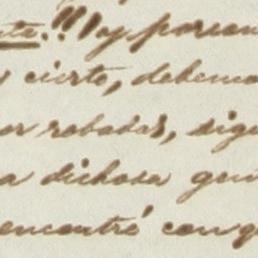 te.!!! Voy porcon
cierto, debemo
or robadas, sigu
a dichosa gen
encontré con q